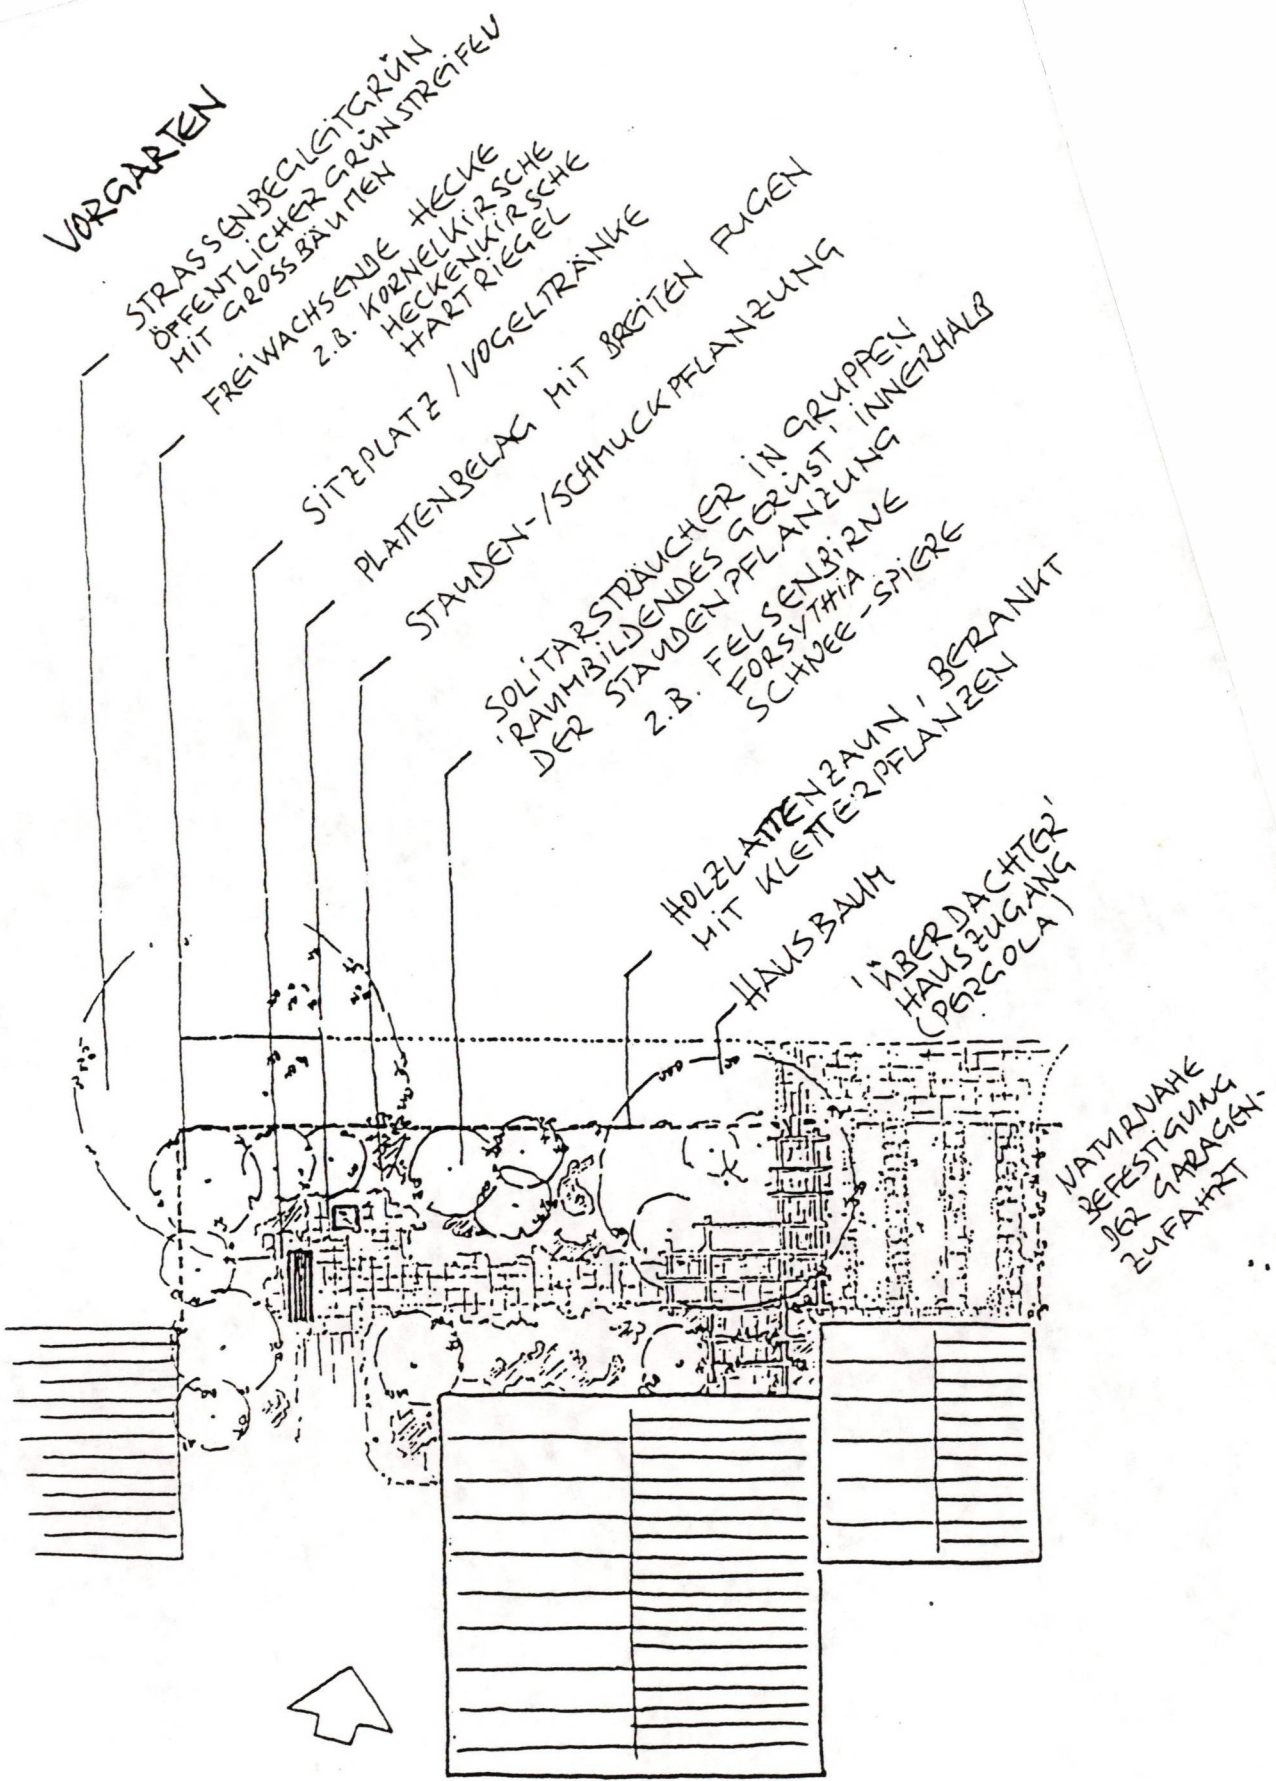 VORGARTEN
STRASSENBEGLEITGRÜN
ÖFFENTLICHER GRÜNSTREIFEN
MIT GROSSBÄUMEN
FREIWACHSENDE HECKE
Z.B. KORNELKIRSCHE
HECKENKIRSCHE
HARTRIEGEL
SITZPLATZ / VOGELTRÄNKE
PLATTENBELAG MIT BREITEN FUGEN
STAUDEN-/SCHMUCKPFLANZUNG
SOLITÄRSTRÄUCHER IN GRUPPEN
'RAUMBILDENDES GERÜST', INNERHALB
DER STAUDENPFLANZUNG
Z.B. FELSENBIRNE
FORSYTHIA
SCHNEE-SPIERE
HOLZLATTENZAUN, BERANKT
MIT KLETTERPFLANZEN
HAUSBAUM
'ÜBERDACHTER'
HAUSZUGANG
(PERGOLA)
NATURNAHE
BEFESTIGUNG
DER GARAGEN-
ZUFAHRT